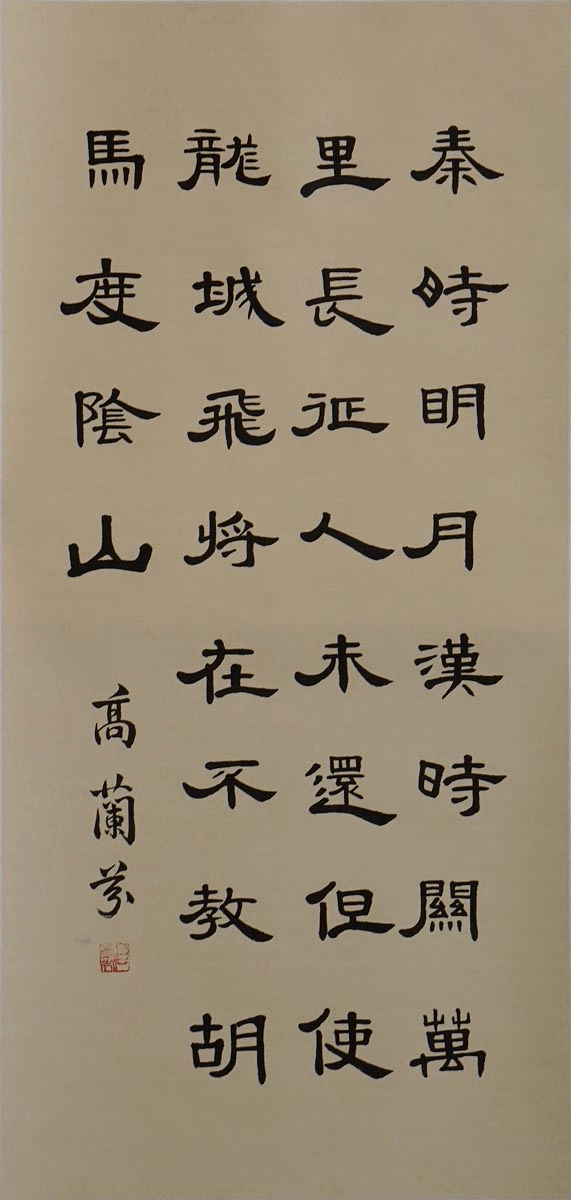 秦時明月漢時關萬
里長征人未還但使
龍城飛将在不教胡
馬度陰山
高蘭芬